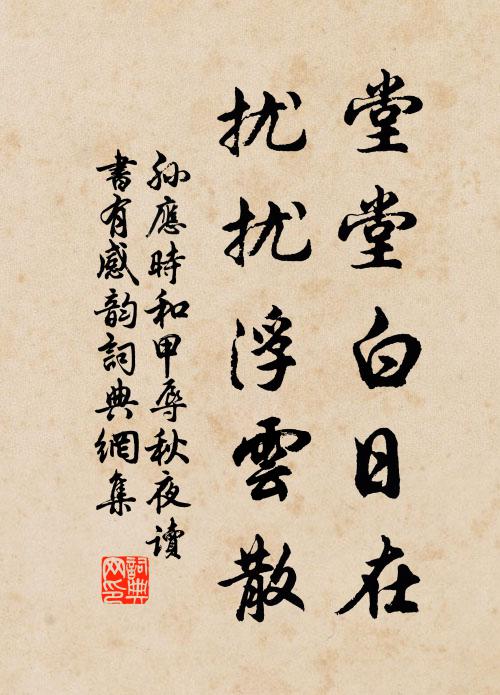 堂堂白日在
扰扰浮雲散
孫應時和甲辰秋夜讀
書有感韵詞典網集
詞典
网印